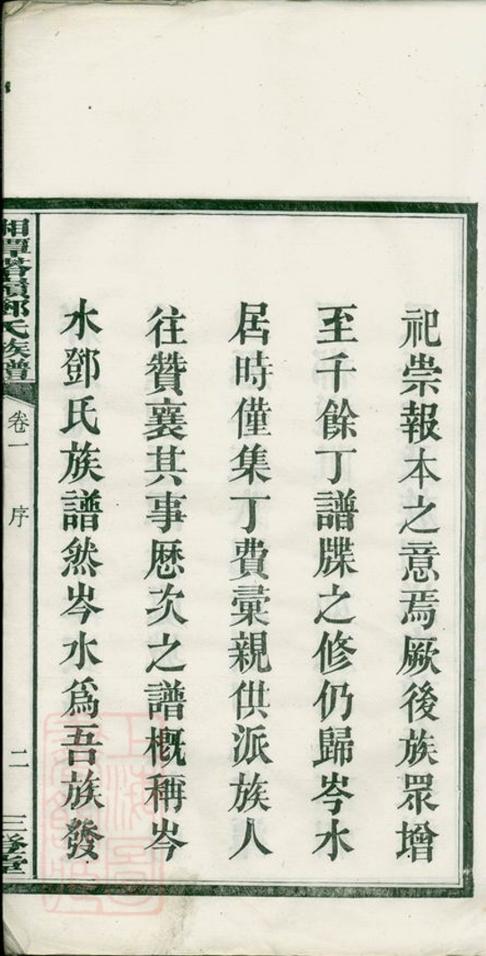 祀崇報本之意焉厥後族眾增
至千餘丁譜牒之修仍歸岑水
居時僅集丁費彙親供派族人
往贊襄其事厯次之譜概稱岑
水鄧氏族譜然岑水為吾族發
氏族譜
卷一
序
二